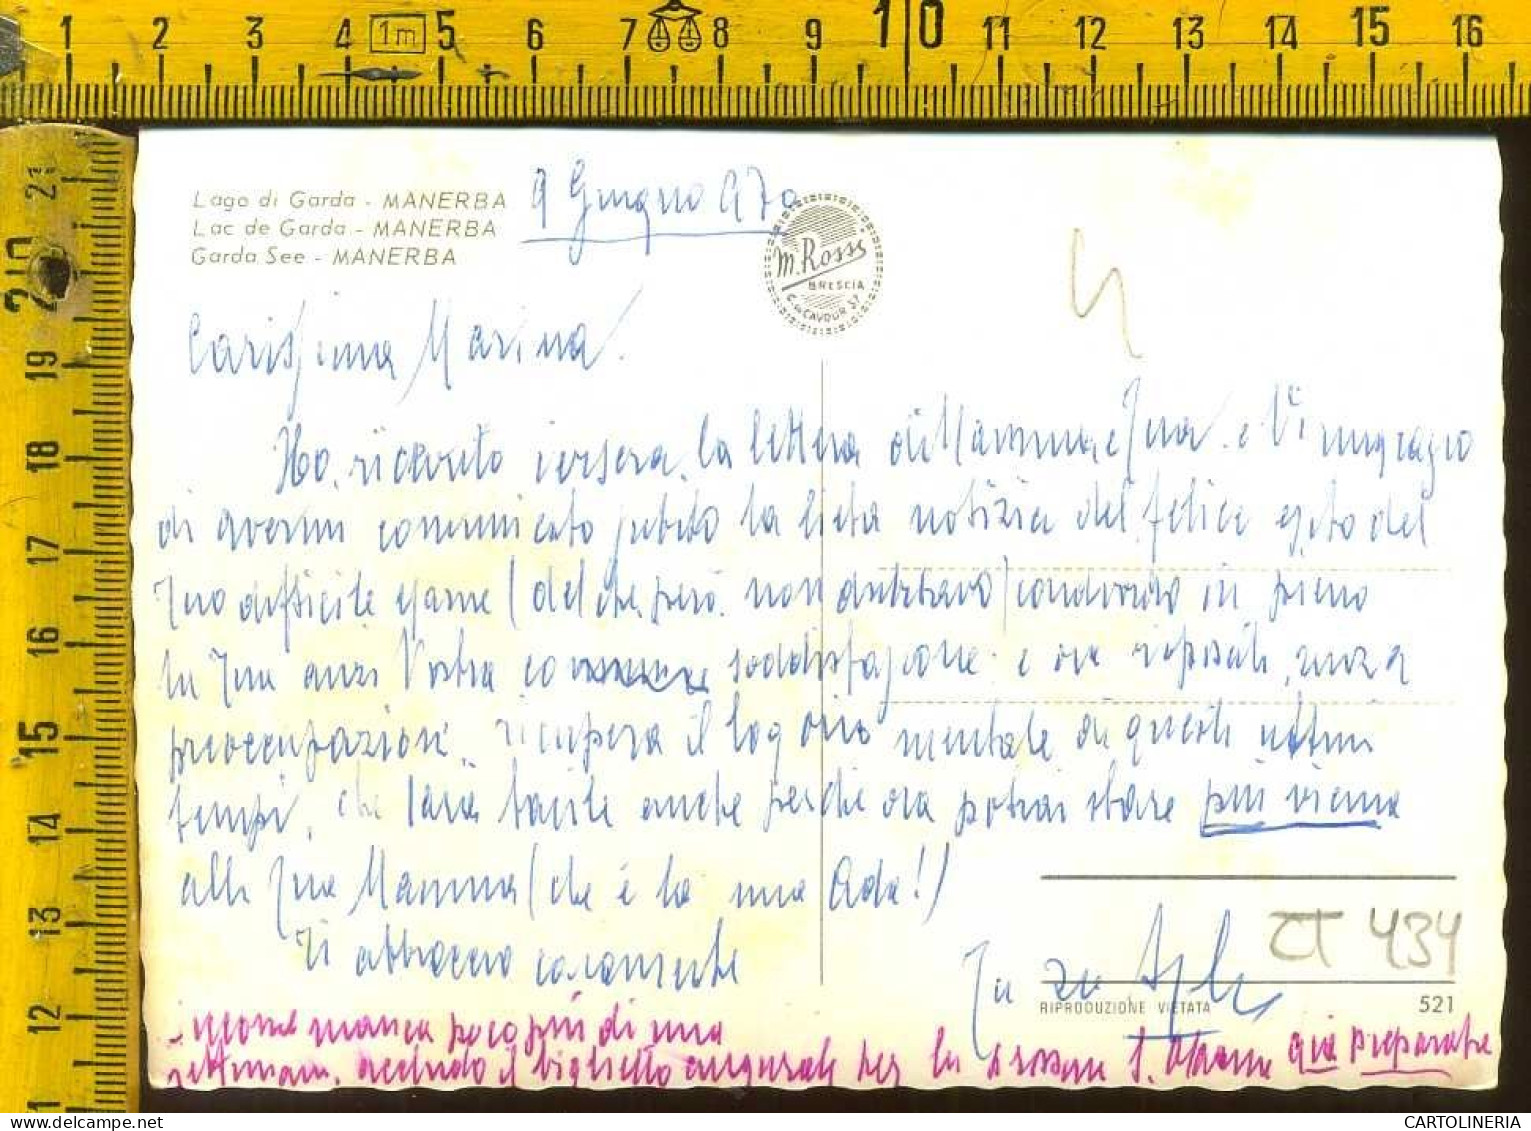 1 2 3 4 1m 5 6 7 8 9 10 11 12 13 14 15 16
21
20
19
18
17
16
15
14
13
12
11
Lago di Garda - MANERBA
Lac de Garda - MANERBA
Garda See - MANERBA
9 Giugno 970
M. Rossi
BRESCIA
C. so CAVOUR 37
Carissima Marina.
Ho ricevuto iersera la lettera di Mamma e Tua e Vi ringrazio
di avermi comunicato subito la lieta notizia del felice esito del
Tuo difficile esame (del che però non dubitavo) condivido in pieno
la Tua anzi Vostra soddisfazione e ora riposati, senza
preoccupazioni, ricupera il logorio mentale di questi ultimi
tempi, che sarà facile anche perchè ora potrai stare più vicina
alla Tua Mamma (che è la mia Ada!)
Ti abbraccio caramente
Tu zu
CT 434
RIPRODUZIONE VIETATA
521
- siccome manca poco più di una
settimana, accludo il biglietto augurale per la S. già preparato
CARTOLINERIA